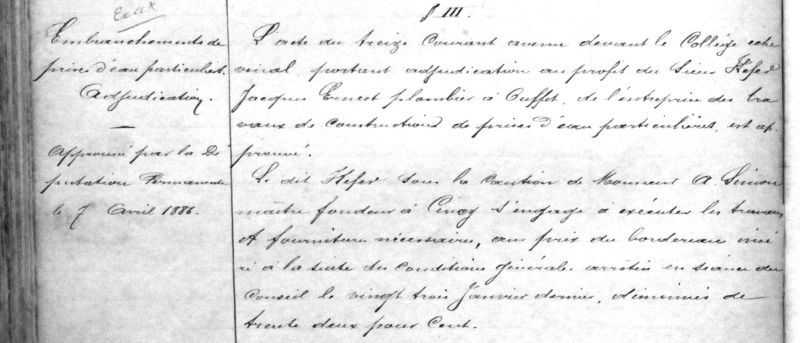 Eaux
Embranchements de
prises d'eau particulières.
Adjudication.
Approuvé par la Dé
putation Permanente
le 7 Avril 1886.
§ III.
L'acte du treize courant avenu devant le Collège éche
vinal, portant adjudication au profit du Sieur Hefer
Jacques Ernest plombier à Ouffet, de l'entreprise des tra
vaux de constructions de prises d'eau particulières, est ap
prouvé.
Le dit Hefer sous la caution de Monsieur A. Simon
maître fondeur à Cincy s'engage à exécuter les travaux
et fournitures nécessaires, aux prix du bordereau insé
ré à la suite des conditions générales arrêtées en séance du
Conseil le vingt trois Janvier dernier, diminués de
trente deux pour cent.